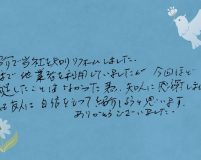 紹介で当社を知りリフォームしました。
まで他業者を利用していましたが今回ほど
したことはなかった為、知人に感謝しま
は友人に自信をもって紹介しようと思います。
ありがとうございました。